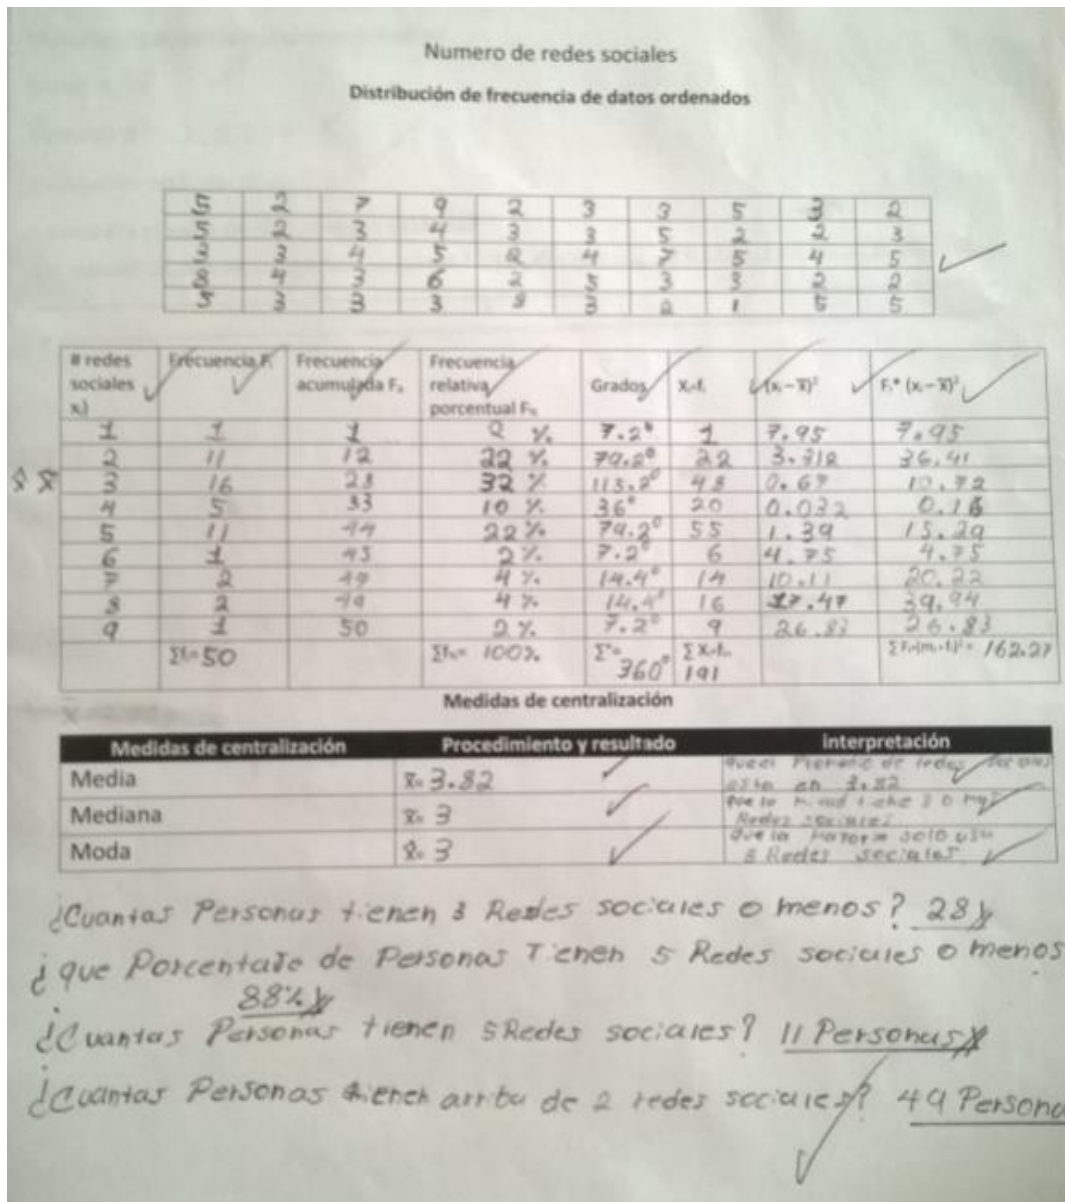 Numero de redes sociales
Distribución de frecuencia de datos ordenados
5 2 7 9 2 3 3 5 3 2
5 2 3 4 3 3 5 2 2 3
3 3 4 5 2 4 7 5 4 5
8 4 3 6 2 5 3 3 2 2
5 3 3 3 8 3 2 1 5 5
# redes sociales x) Frecuencia F Frecuencia acumulada Fₐ Frecuencia relativa porcentual Grados Xᵢ·fᵢ (xᵢ – x̄)² Fᵢ* (xᵢ – x̄)²
1 1 1 2 % 7.2° 1 7.95 7.95
2 11 12 22 % 79.2° 22 3.312 36.41
3 16 28 32 % 115.2° 48 0.67 10.72
4 5 33 10 % 36° 20 0.032 0.16
5 11 44 22 % 79.2° 55 1.39 15.29
6 1 45 2 % 7.2° 6 4.75 4.75
7 2 47 4 % 14.4° 14 10.11 20.22
8 2 49 4 % 14.4° 16 17.47 39.94
9 1 50 2 % 7.2° 9 26.83 26.83
Σf=50 100% 360° 191 162.27
Medidas de centralización
Medidas de centralización Procedimiento y resultado interpretación
Media x̄= 3.82 que el de redes sociales esta en 3.82
Mediana 3 que la tiene 3 o mas Redes sociales
Moda 3 que la mayoria solo usa 3 Redes sociales
¿Cuantas Personas tienen 3 Redes sociales o menos? 28
¿que Porcentaje de Personas Tienen 5 Redes sociales o menos
88%
¿Cuantas Personas tienen 5 Redes sociales? 11 Personas
¿Cuantas Personas tienen arriba de 2 redes sociales? 49 Persona